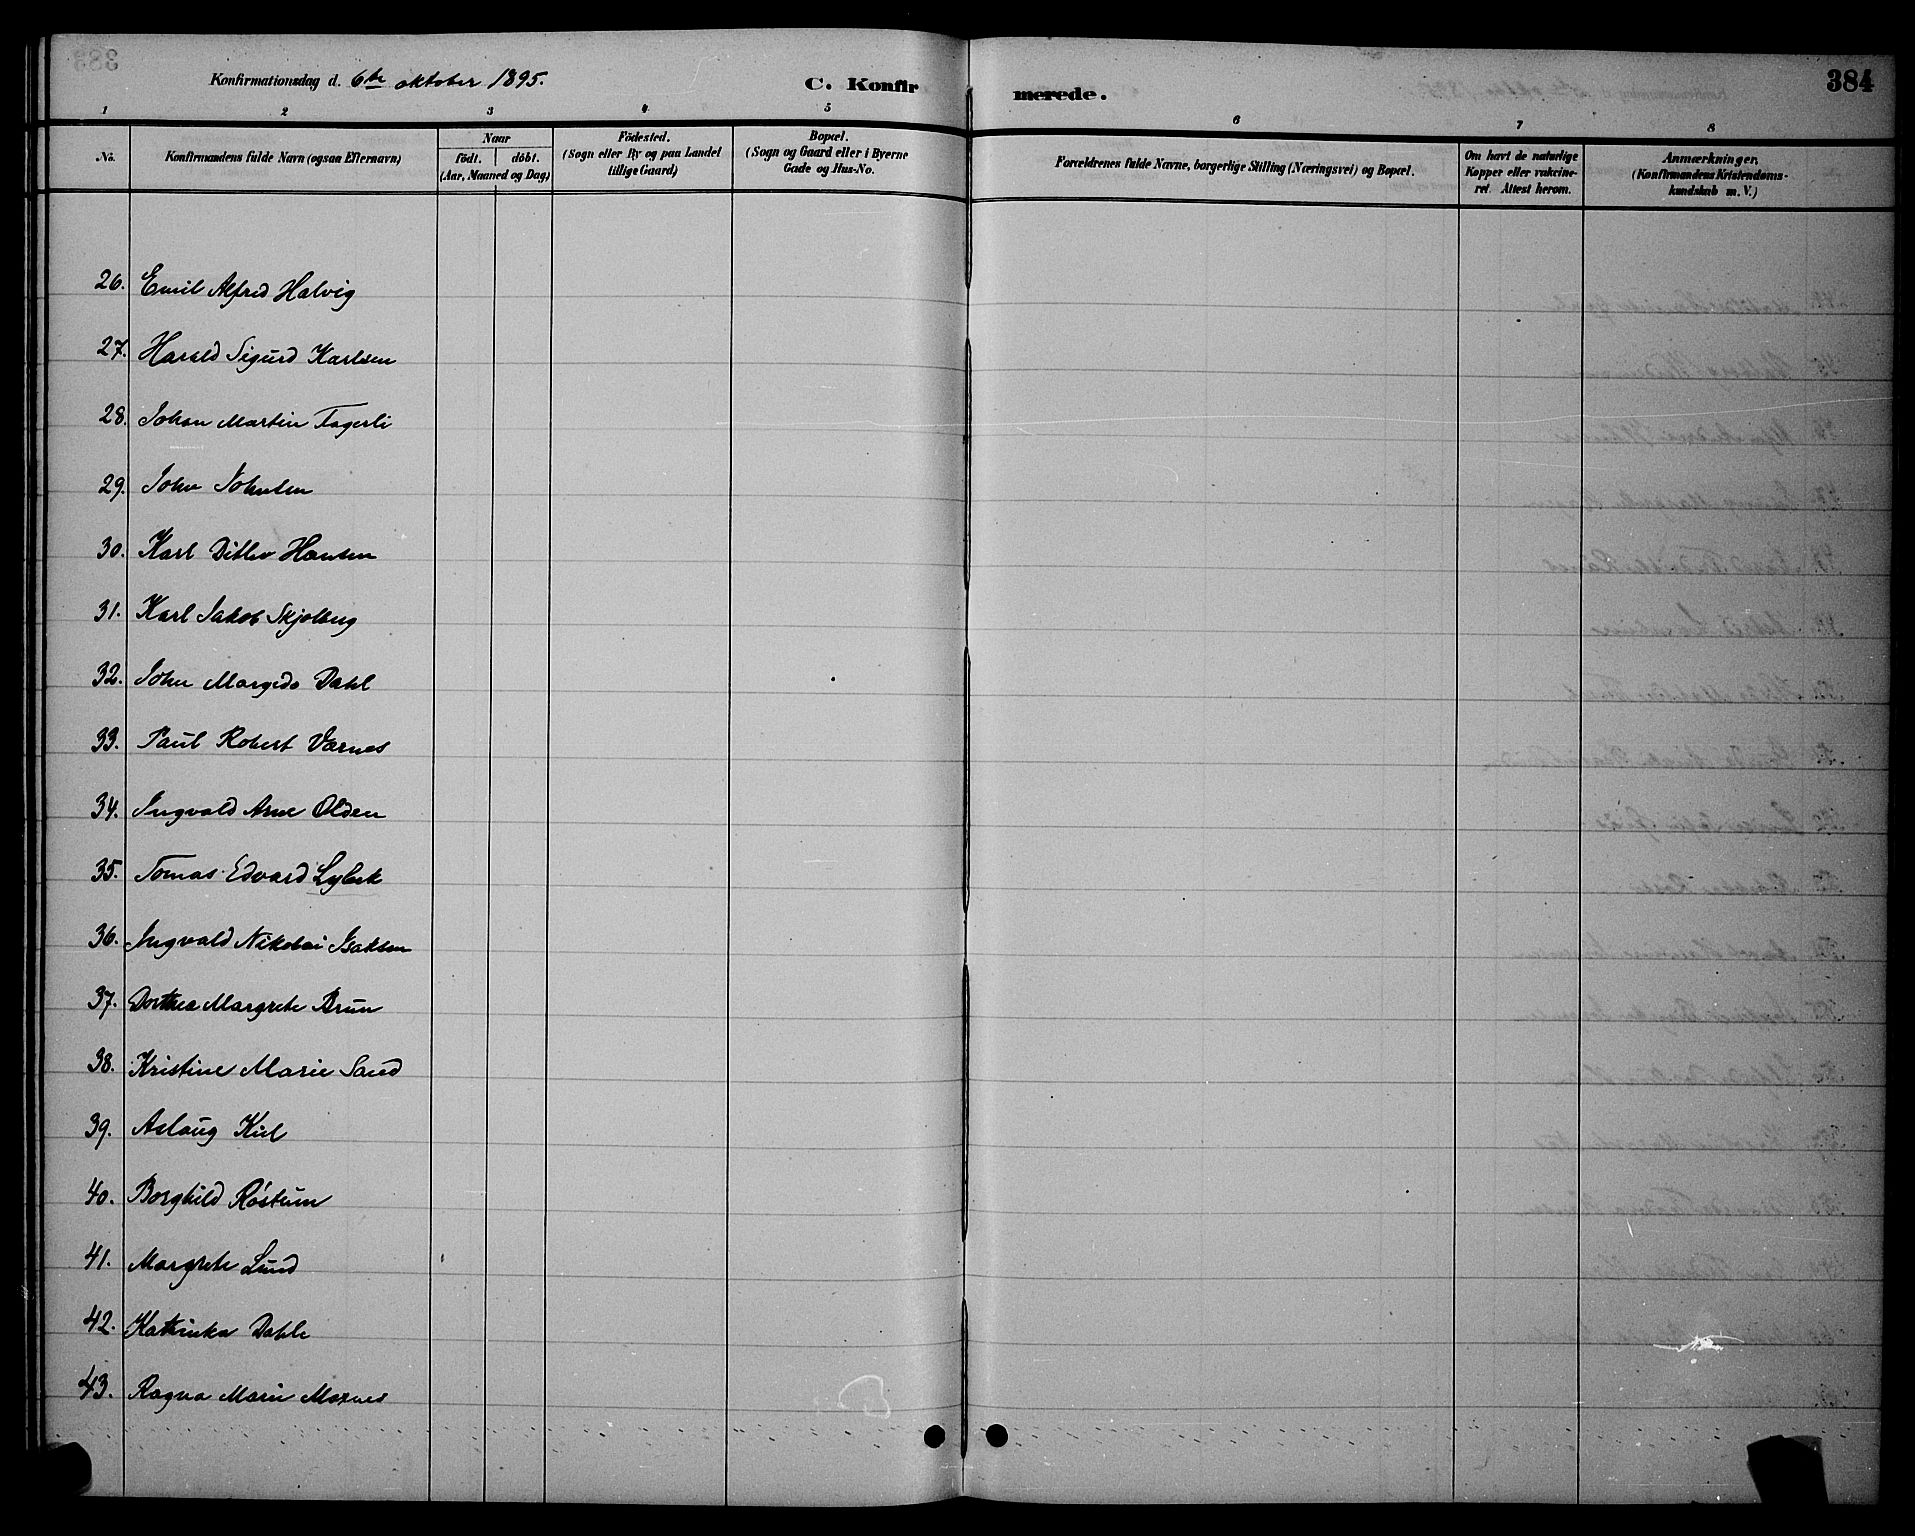 Konfirmationsdag d. 6te oktober 1895.
C. Konfirmerede.
384
1 2 3 4 5 6 7 8
No.
Konfirmandens fulde Navn (ogsaa Efternavn)
Naar
födt. döbt.
(Aar, Maaned og Dag)
Födested.
(Sogn eller By og paa Landet
tillige Gaard)
Bopæl.
(Sogn og Gaard eller i Byerne
Gade og Hus-No.
Forældrenes fulde Navne, borgerlige Stilling (Næringsvei) og Bopæl.
Om havt de naturlige
Kopper eller vakcine-
ret. Attest herom.
Anmærkninger.
(Konfirmandens Kristendoms-
kundskab m. V.)
26. Emil Alfred Halvig
27. Harald Sigurd Karlsen
28. Johan Martin Fagerli
29. John Johnsen
30. Karl Ditlev Hansen
31. Karl Jakob Skjelberg
32. John Margido Dahl
33. Paul Robert Værnes
34. Ingvald Arne Olden
35. Tomas Edvard Lybek
36. Ingvald Nikolai Isaksen
37. Dorthea Margrete Brun
38. Kristine Marie Sand
39. Aslaug Kiel
40. Borghild Röstum
41. Margrete Lund
42. Kathinka Dahle
43. Ragna Marie Moxnes